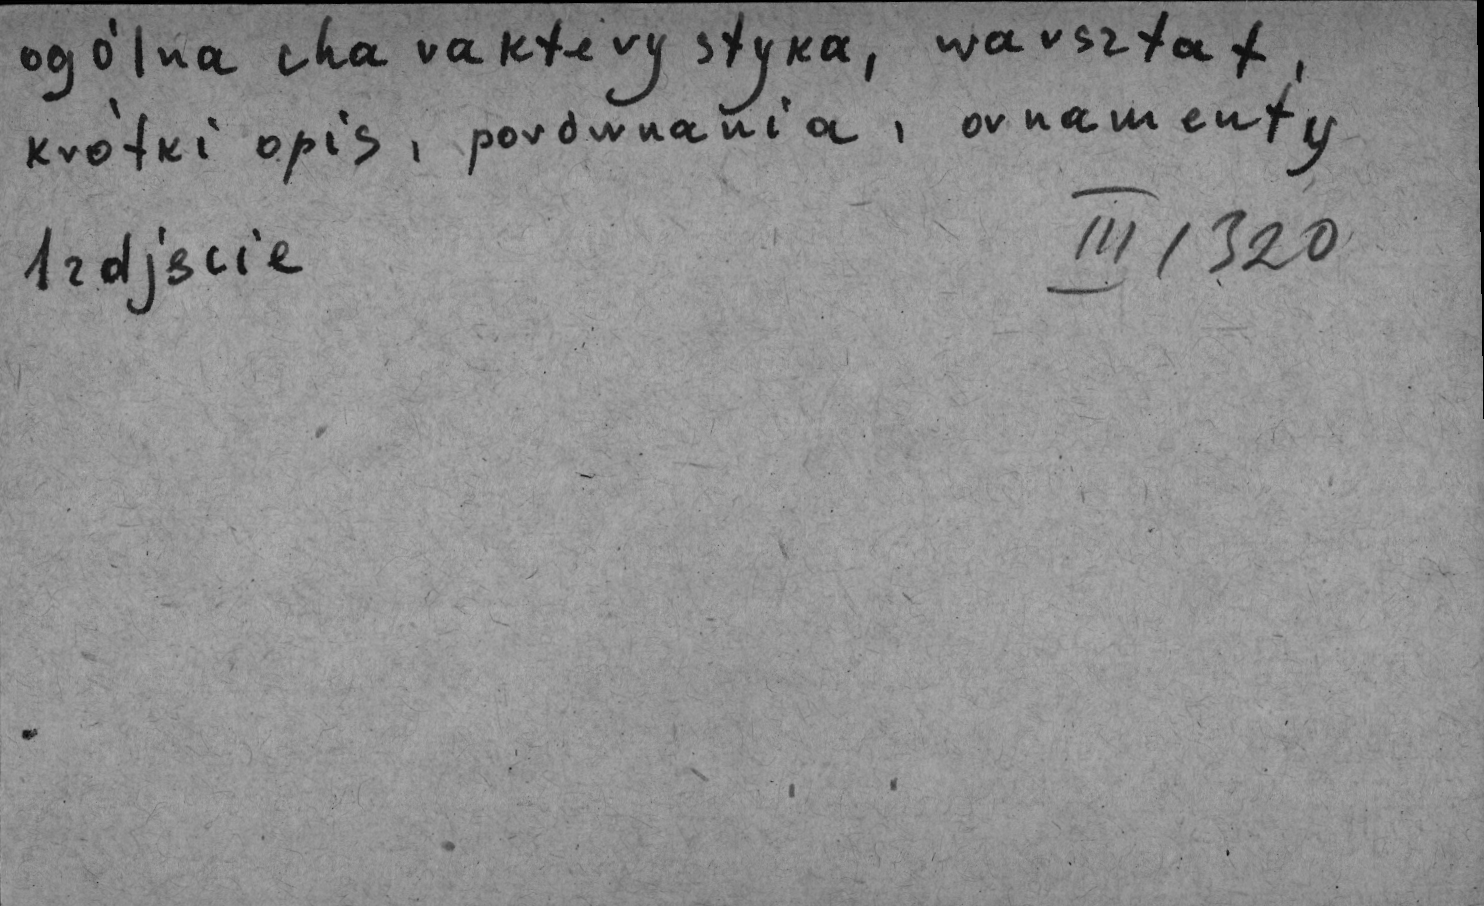 ogólna charakterystyka, warsztat,
krótki opis, porównania, ornamenty
1 zdjście
III / 320